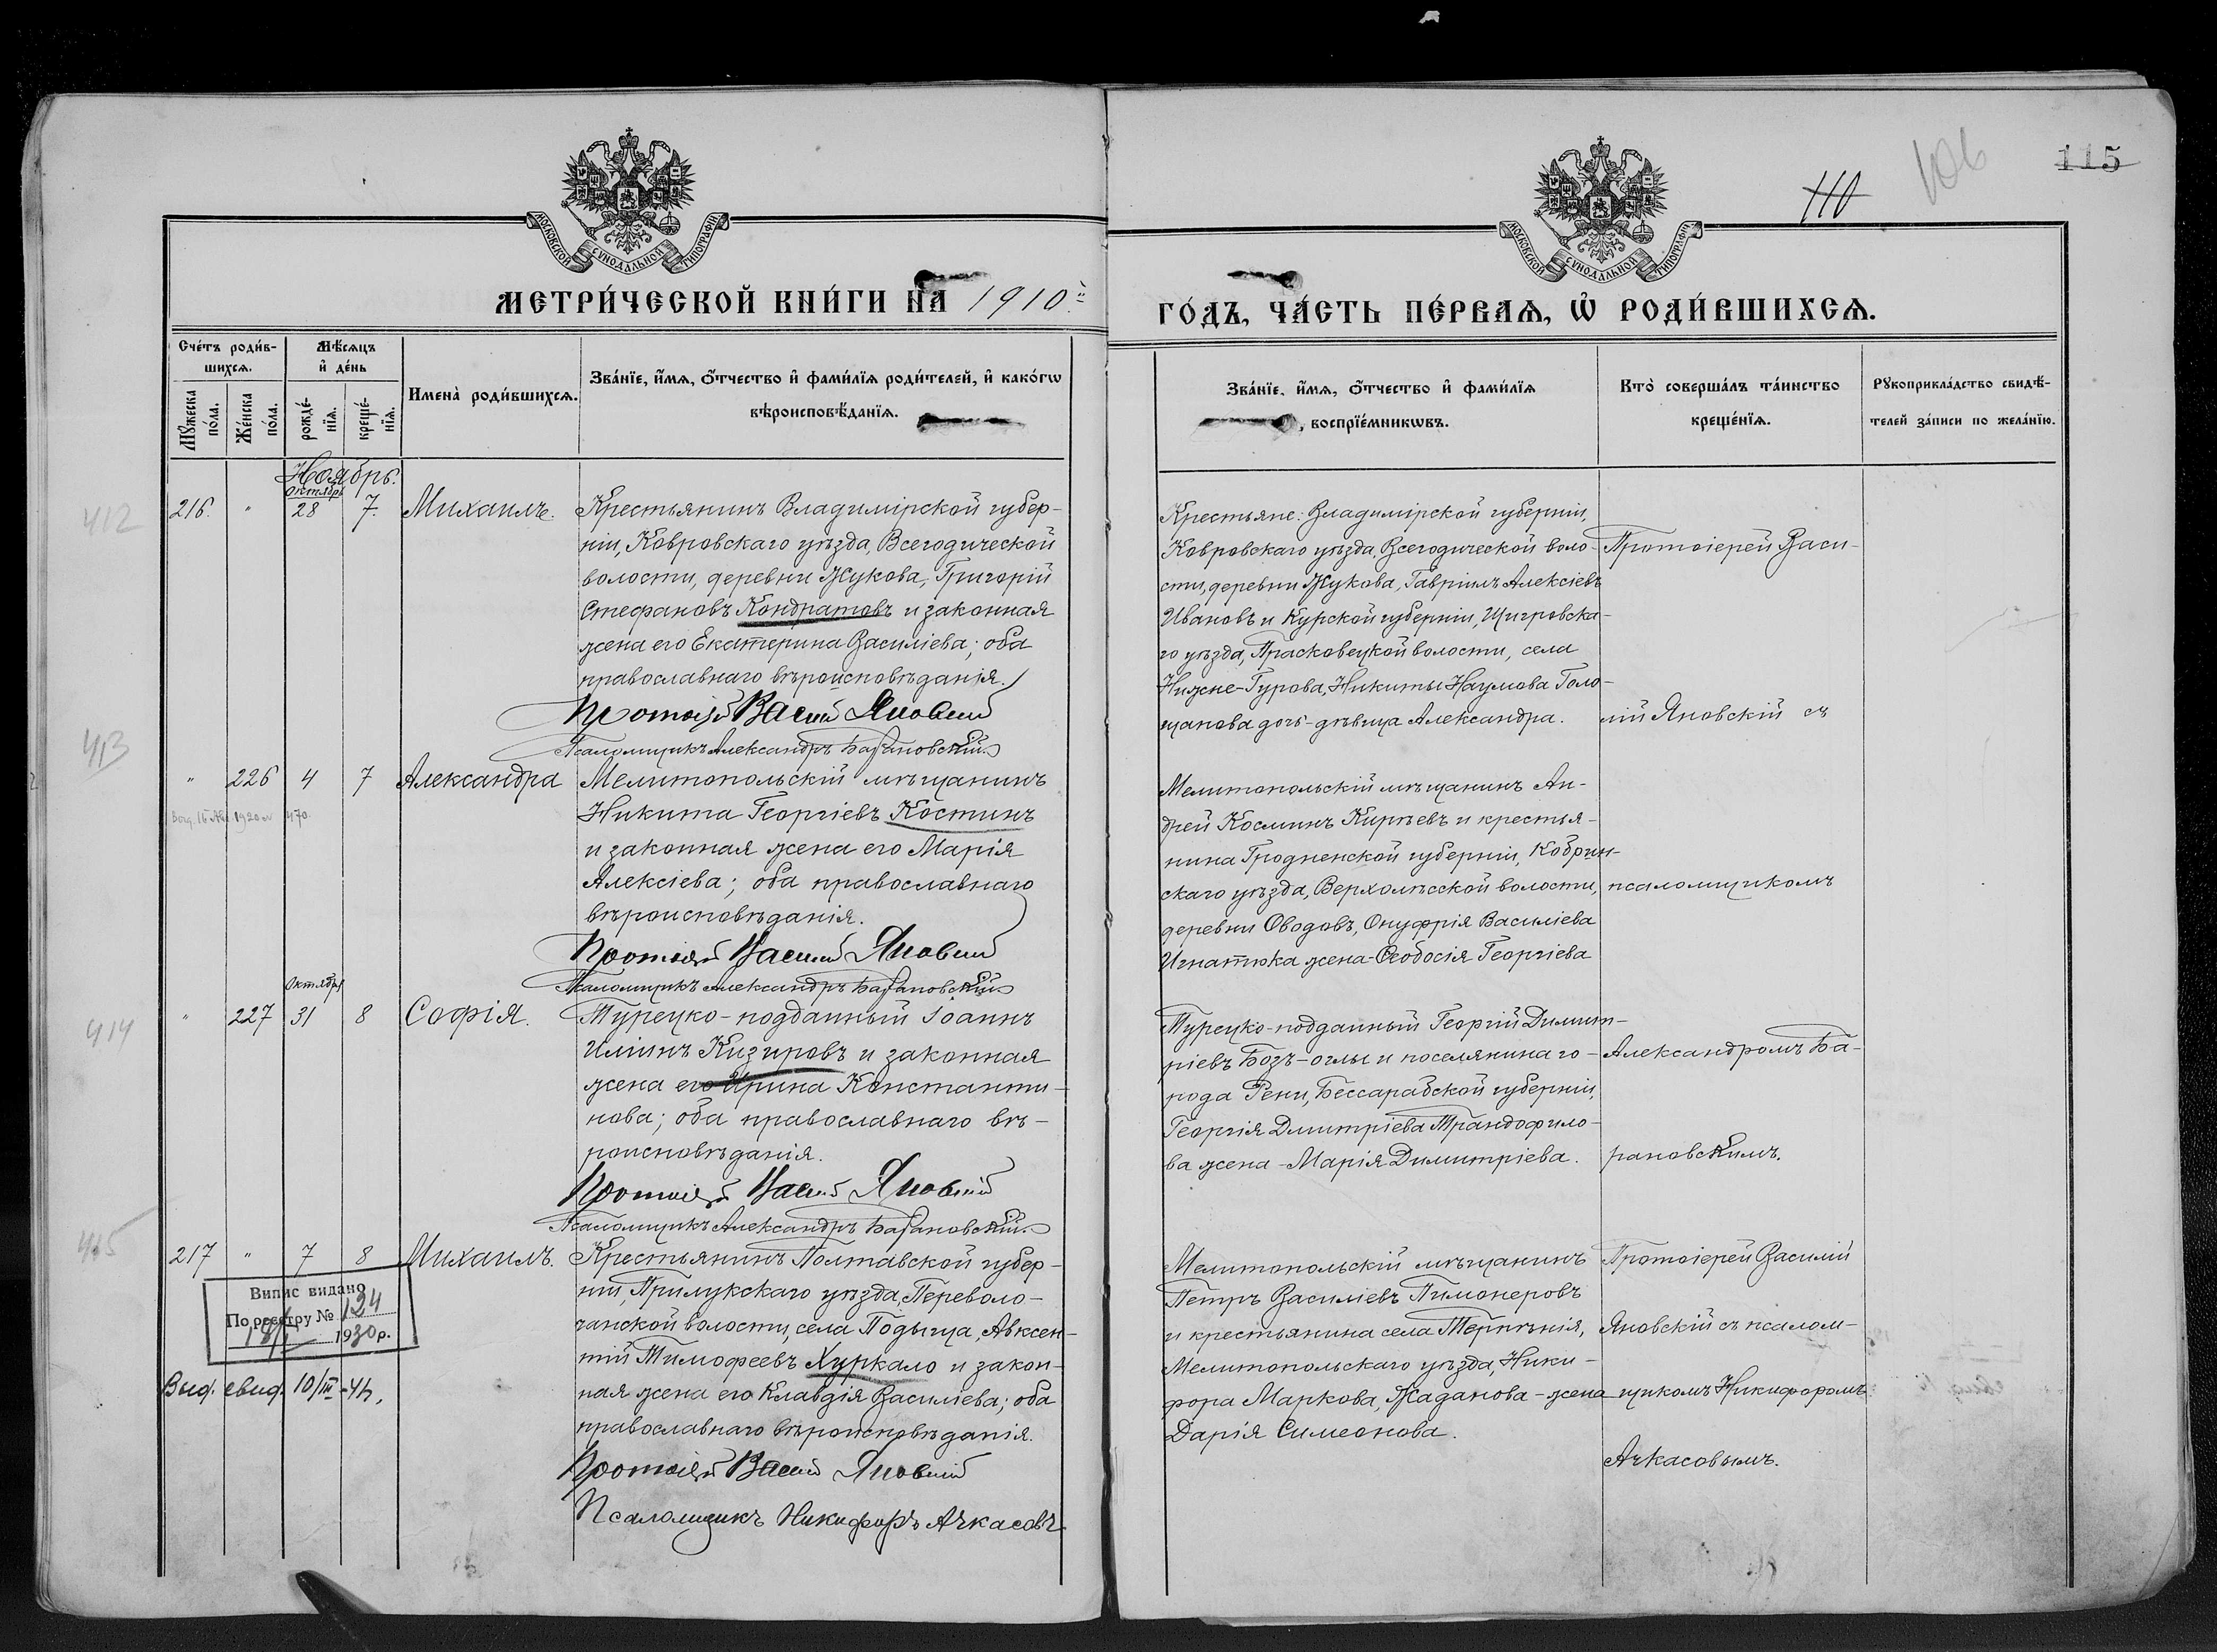 106
115
110
МОСКОВСКОЙ СѴНОДАЛЬНОЙ ТИПОГРАФІИ
МОСКОВСКОЙ СѴНОДАЛЬНОЙ ТИПОГРАФІИ
МЕТРИ́ЧЕСКОЙ КНИ́ГИ НА 1910й
ГО́ДЪ, ЧА́СТЬ ПЕ́РВАѦ, Ѡ҆ РОДИ́ВШИХСѦ.
Сче́тъ роди́в-
шихсѧ.
Мꙋ́жеска по́ла.
Же́нска по́ла.
Мѣ́сѧцъ
и҆ де́нь
рожде́-
нїѧ.
креще́-
нїѧ.
Имена̀ роди́вшихсѧ.
Зва́нїе, и҆́мѧ, ѻ҆́тчество и҆ фами́лїѧ роди́телей, и҆ како́гѡ
вѣроисповѣ́данїѧ.
Зва́нїе, и҆́мѧ, ѻ҆́тчество и҆ фами́лїѧ
воспрїе́мникѡвъ.
Кто̀ соверша́лъ та́инство
креще́нїѧ.
Рꙋкоприкла́дство свидѣ́-
телей за́писи по жела́нїю.
Ноябрь.
Октябрь
412
216. " 28 7. Михаилъ.
Крестьянинъ Владимірской губер-
ніи, Ковровскаго уѣзда, Всегодической
волости, деревни Жукова, Григорій
Стефановъ Кондратовъ и законная
жена его Екатерина Василіева; оба
православнаго вѣроисповѣданія.
Протоіерей Василій Яновскій
Псаломщикъ Александръ Барановскій
Крестьяне: Владимірской губерніи,
Ковровскаго уѣзда, Всегодической воло-
сти, деревни Жукова, Гавріилъ Алексіевъ
Ивановъ и Курской губерніи, Щигровска-
го уѣзда, Прасковецкой волости, села
Нижне-Гурова, Никиты Наумова Голо-
щапова дочь-дѣвица Александра.
Протоіерей Васи-
лій Яновскій съ
413
" 226 4 7 Александра
1920 470.
Мелитопольскій мѣщанинъ
Никита Георгіевъ Костинъ
и законная жена его Марія
Алексіева; оба православнаго
вѣроисповѣданія.
Протоіерей Василій Яновскій
Псаломщикъ Александръ Барановскій
Мелитопольскій мѣщанинъ Ан-
дрей Косминъ Кирѣевъ и крестья-
нина Гродненской губерніи, Кобрин-
скаго уѣзда, Верхолѣсской волости,
деревни Оводовъ, Онуфрія Василіева
Игнатюка жена-Ѳеодосія Георгіева
псаломщикомъ
Октября
414
" 227 31 8 Софія.
Турецко-подданный Іоаннъ
Иліинъ Кизировъ и законная
жена его Ирина Константи-
нова; оба православнаго вѣ-
роисповѣданія.
Протоіерей Василій Яновскій
Псаломщикъ Александръ Барановскій
Турецко-подданный Георгій Димит-
ріевъ Бозъ-оглы и поселянина го-
рода Рени, Бессарабской губерніи,
Георгія Димитріева Трандофило-
ва жена-Марія Димитріева.
Александромъ Ба-
рановскимъ.
415
217 " 7 8 Михаилъ.
Випис видано
По реєстру № 134
1930 р.
Выд. свид. 10/III-41,
Крестьянинъ Полтавской губер-
ніи, Прилукскаго уѣзда, Переволо-
чанской волости, села Подыща, Авксен-
тій Тимофеевъ Хуркало и закон-
ная жена его Клавдія Василіева; оба
православнаго вѣроисповѣданія.
Протоіерей Василій Яновскій
Псаломщикъ Никифоръ Ачкасовъ
Мелитопольскій мѣщанинъ
Петръ Василіевъ Пимонеровъ
и крестьянина села Терпѣнія,
Мелитопольскаго уѣзда, Ники-
фора Маркова, Жаданова-жена
Дарія Симеонова.
Протоіерей Василій
Яновскій съ псалом-
щикомъ Никифоромъ
Ачкасовымъ.